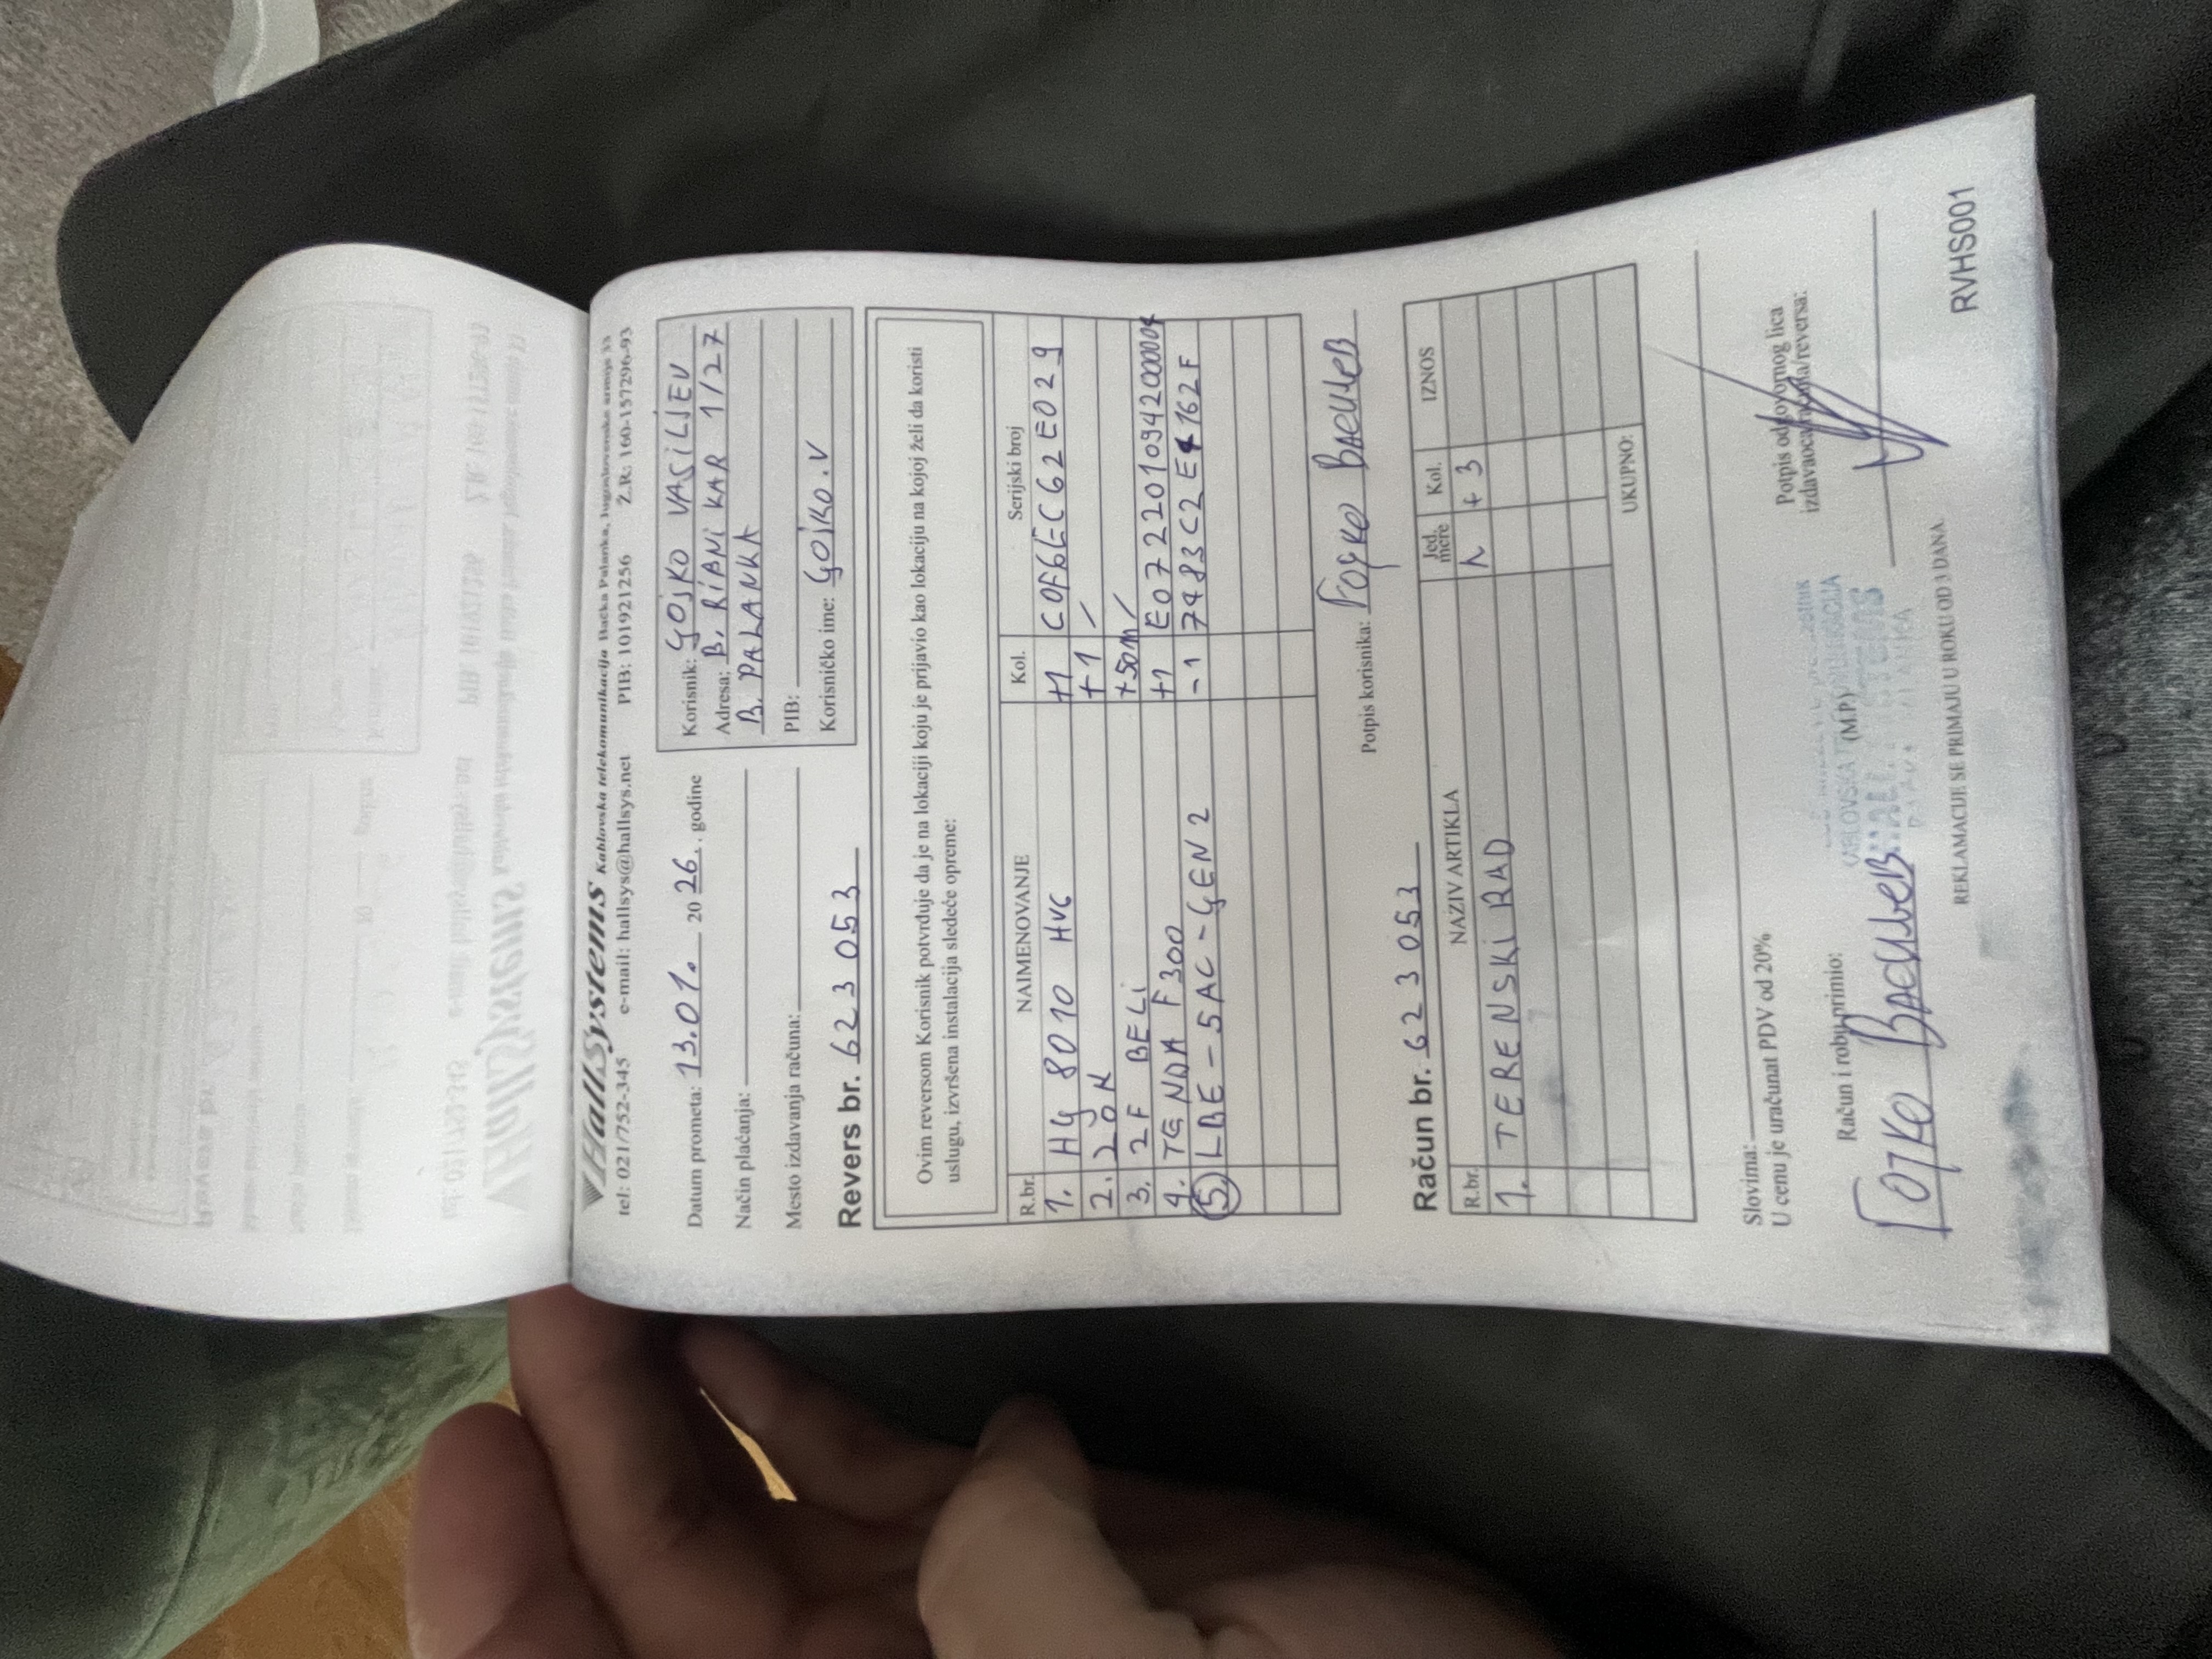 HallSystems Kablovska telekomunikacija Bačka Palanka, Jugoslovenske armije 33
tel: 021/752-345 e-mail: hallsys@hallsys.net PIB: 101921256 Ž.R: 160-157296-93
Datum prometa: 13.01. 20 26. . godine
Način plaćanja:
Mesto izdavanja računa:
Korisnik: GOJKO VASILJEV
Adresa: B. RIBNIKAR 1/27
B. PALANKA
PIB:
Korisničko ime: GOJKO.V
Revers br. 623053
Ovim reversom Korisnik potvrđuje da je na lokaciji koju je prijavio kao lokaciju na kojoj želi da koristi
uslugu, izvršena instalacija sledeće opreme:
R.br. NAIMENOVANJE Kol. Serijski broj
1. HG 8010 HV6 +1 C0F6EC62E029
2. +1 /
3. 2F BELI +50m /
4. TENDA F300 +1 E0722010942000004
5. LBE-5AC-GEN2 -1
Potpis korisnika: Гојко Васиљев
Račun br. 623053
R.br. NAZIV ARTIKLA Jed. mere Kol. IZNOS
1. TERENSKI RAD h + 3
UKUPNO:
Slovima:
U cenu je uračunat PDV od 20%
Račun i robu primio:
Гојко Васиљев
(M.P)
Potpis odgovornog lica
izdavaoca računa/reversa:
REKLAMACIJE SE PRIMAJU U ROKU OD 3 DANA.
RVHS001